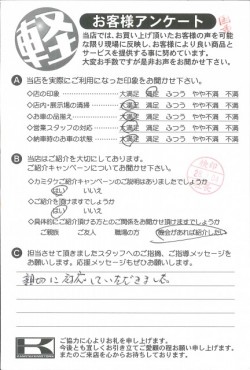 軽
お客様アンケート
当店では、お買い上げ頂いたお客様の声を可能
な限り現場に反映し、お客様により良い商品と
サービスを提供する事に努めています。
大変お手数ですが是非お聞かせ下さい。
A 当店を実際にご利用になった印象をお聞かせ下さい。
◇店の印象 大満足 満足 ふつう やや不満 不満
◇店内・展示場の清掃 大満足 満足 ふつう やや不満 不満
◇お車の品揃え 大満足 満足 ふつう やや不満 不満
◇営業スタッフの対応 大満足 満足 ふつう やや不満 不満
◇納車時のお車の状態 大満足 満足 ふつう やや不満 不満
B 当店はご紹介を大切にしております。
ご紹介キャンペーンについてお聞かせ下さい。
◇カミタケご紹介キャンペーンのご説明はありましたでしょうか
はい いいえ
◇ご紹介を頂けますでしょうか
はい いいえ
◇具体的にご紹介頂ける方とのご関係をお聞かせ頂けますでしょうか
ご親族 ご友人 職場の方 機会があれば紹介したい
C 担当させて頂きましたスタッフへのご指摘、ご指導メッセージを
お願いします。応援メッセージもぜひお願いします。
親切に対応していただきました。
K
ご協力に心よりお礼を申し上げます。
今後とも宜しくお引き立てご愛顧の程お願い申し上げます。
またのご来店を心からお待ちしております。